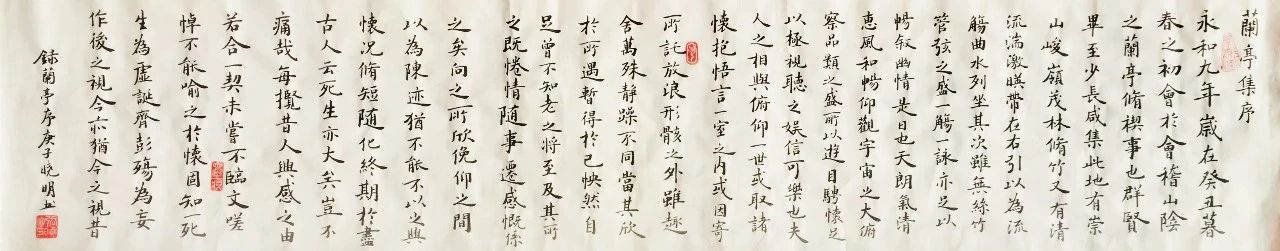 蘭亭集序
永和九年歲在癸丑暮
春之初會於會稽山陰
之蘭亭脩禊事也群賢
畢至少長咸集此地有崇
山峻嶺茂林脩竹又有清
流湍激暎帶左右引以為流
觴曲水列坐其次雖無絲竹
管弦之盛一觴一詠亦足以
暢叙幽情是日也天朗氣清
惠風和暢仰觀宇宙之大俯
察品類之盛所以遊目騁懷足
以極視聽之娛信可樂也夫
人之相與俯仰一世或取諸
懷抱悟言一室之内或因寄
所託放浪形骸之外雖趣
舍萬殊靜躁不同當其欣
於所遇暫得於己怏然自
足曾不知老之將至及其所
之既惓情隨事遷感慨係
之矣向之所欣俛仰之間
以為陳迹猶不能不以之興
懷况脩短隨化終期於盡
古人云死生亦大矣豈不
痛哉每攬昔人興感之由
若合一契未嘗不臨文嗟
悼不能喻之於懷固知一死
生為虛誕齊彭殤為妄
作後之視今亦猶今之視昔
錄蘭亭序庚子曉明書